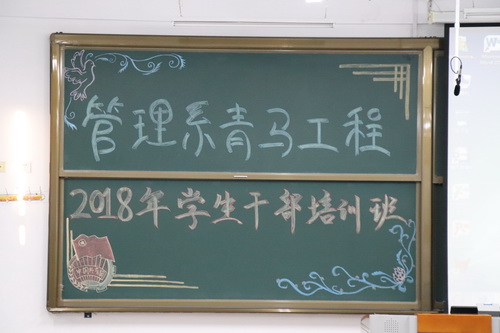 管理系青马工程
2018年学生干部培训班